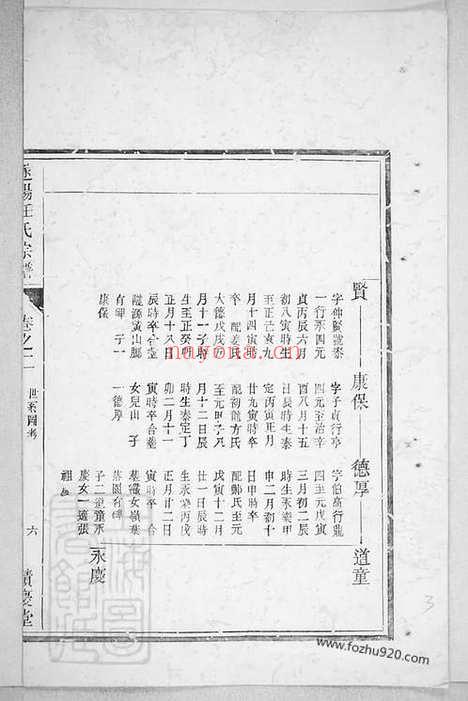 賢
字仲賢號泰
一行承四元
貞丙辰六月
初八寅時生
至正己亥九
月十四寅時
卒 配姜氏
大德戊戌六
月十一子時
生至正癸卯
正月十八日
辰時卒合塟
有碑 子一
康保
康保
字子貞行亨
四元至治辛
酉八月十五
日辰時生泰
定丙寅正月
廿九寅時卒
配初龍方氏
至元甲子九
月十二日辰
時生泰定丁
卯二月十一
寅時卒合塟
女兒山 子
一德厚
德厚
字伯高行龍
四至元戊寅
三月初二辰
時生永樂甲
申二月初十
日申時卒
配鄭氏至元
戊寅十二月
廿一日辰時
生永樂丙戌
正月廿二日
寅時卒 合
子二道童永
慶女一適張
道童
永慶
遂陽汪氏宗譜
卷之二
世系圖考
六
積慶堂
3
nuyona.cn
www.fozhu920.com